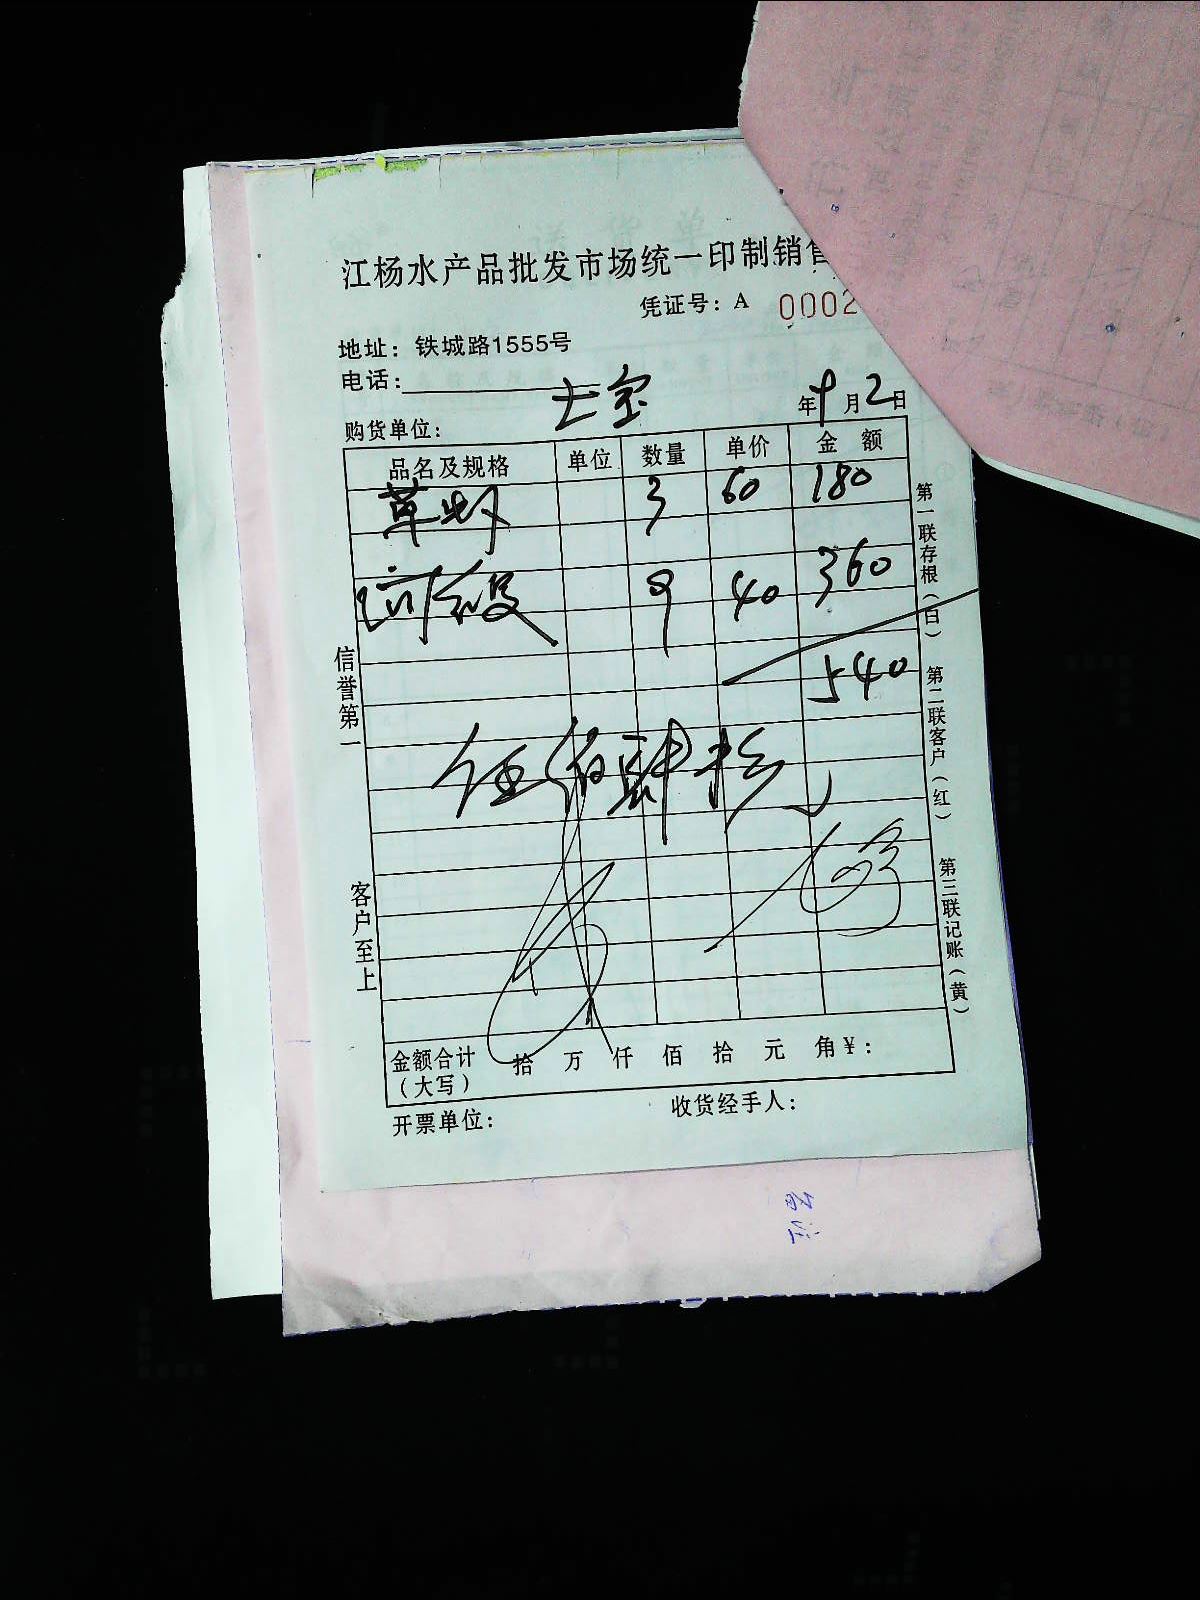 江杨水产品批发市场统一印制销售
凭证号：A 0002
地址：铁城路1555号
电话：
购货单位：七宝 年 9 月 2 日
品名及规格 单位 数量 单价 金额
草虾 3 60 180
9 40 360
540
伍佰肆拾元
金额合计（大写） 拾 万 仟 佰 拾 元 角 ¥：
开票单位： 收货经手人：
信誉第一
客户至上
第一联存根（白）
第二联客户（红）
第三联记账（黄）